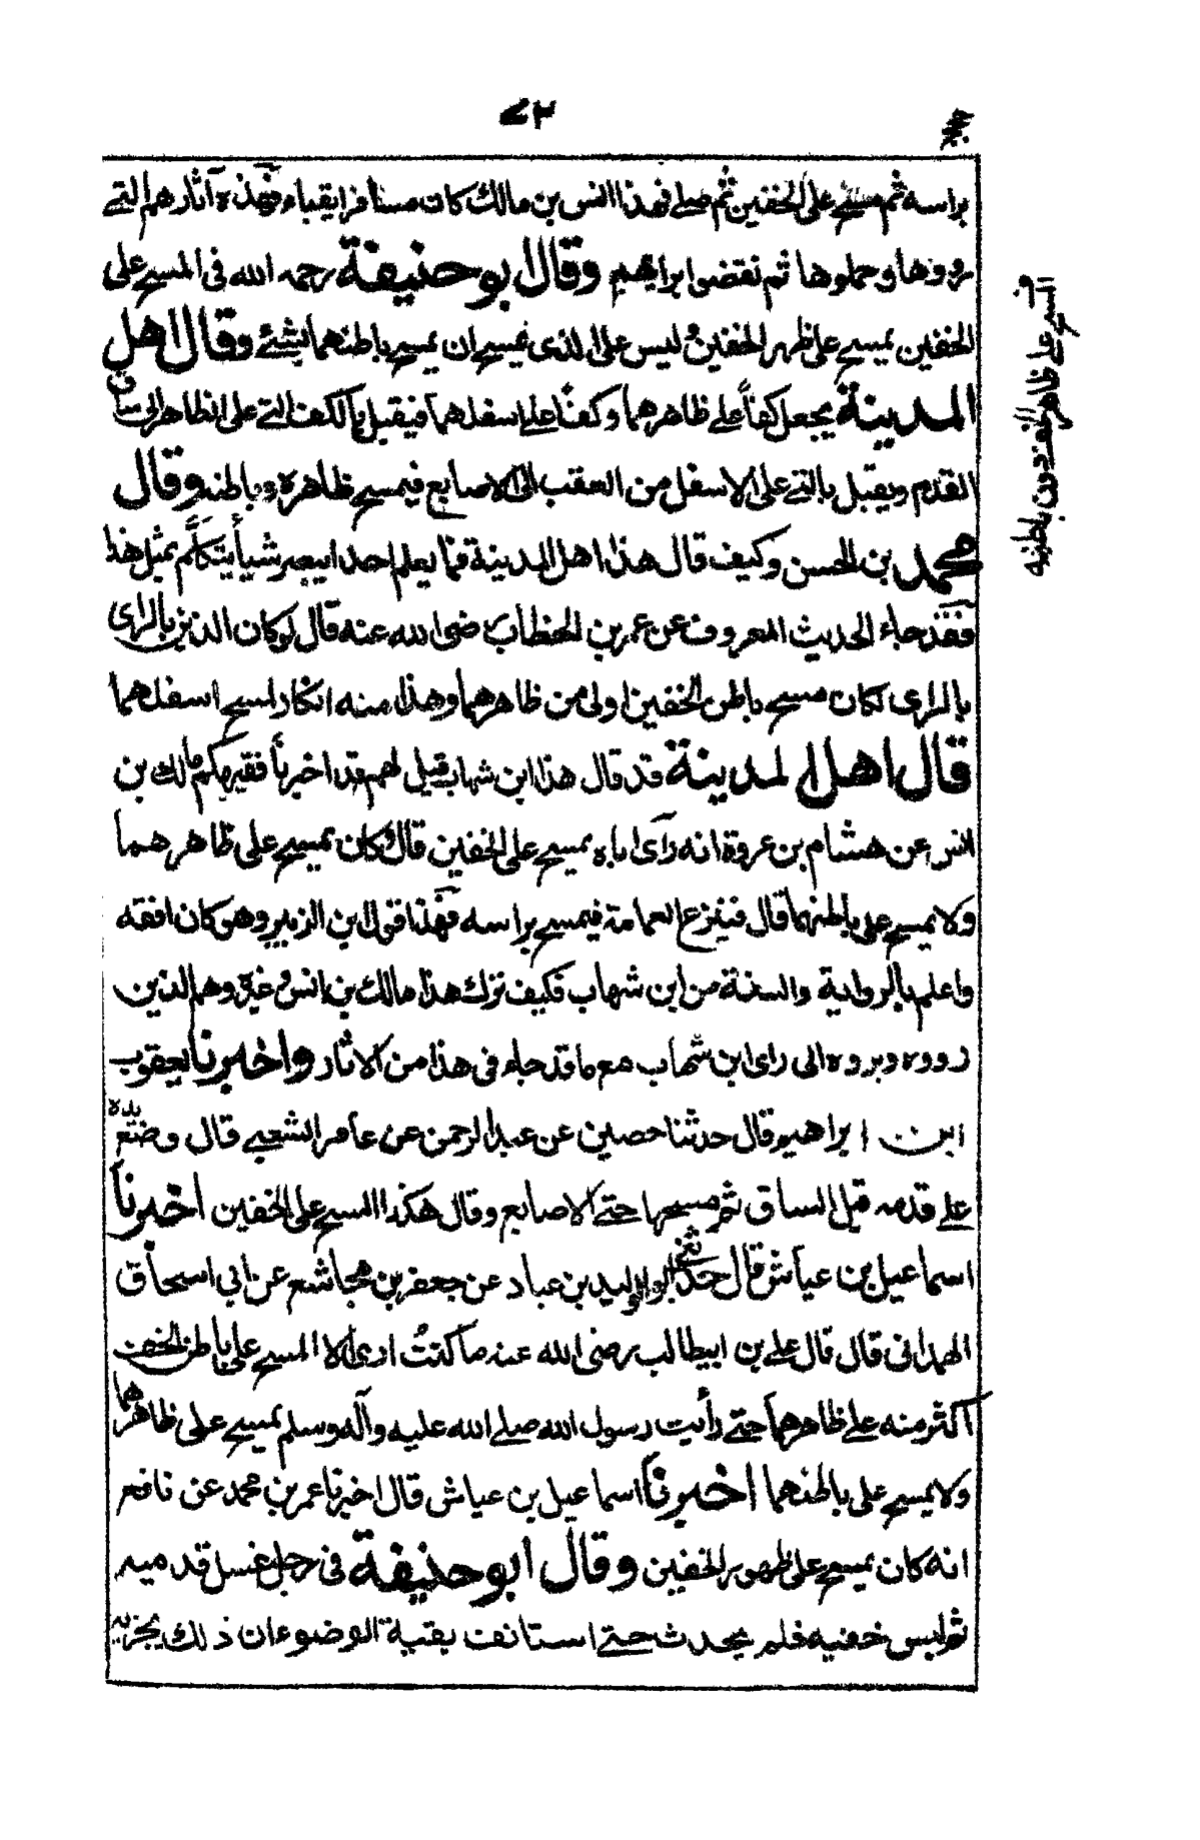 براسه ثم مسح على الخفين ثم صلے فهذا انس بن مالك كان مسافرا بقباء فهذه آثارهم التے
رووها وحملوها ثم نقضوا برايهم وقال ابو حنيفة رحمه الله فى المسح على
الخفين يمسح على ظهر الخفين وليس على الذى يمسح ان يمسح باطنهما بشئ وقال اهل
المدينة يجعل كفاً علے ظاهرهما وكفاً علے اسفلهما فيقبل بالكف التے على الظاهر الى ساق
القدم ويقبل بالتے على الاسفل من العقب الى الاصابع فيمسح ظاهره وباطنه وقال
محمد بن الحسن وكيف قال هذا اهل المدينة فما يعلم احدا يبصر شيأ يتكلم بمثل هذا
فقد جاء الحديث المعروف عن عمر بن الخطاب رضى الله عنه قال لو كان الدين بالراى
بالراى لكان مسح باطن الخفين اولى من ظاهرهما وهذا منه انكار لمسح اسفلهما
قال اهل المدينة قد قال هذا ابن شهاب قيل لهم قد اخبرنا فقيهكم مالك بن
انس عن هشام بن عروة انه رآى اباه يمسح على الخفين قال وكان يمسح على ظاهرهما
ولا يمسح على باطنهما قال فينزع العمامة فيمسح براسه فهذا قول ابن الزبير وهو كان افقه
واعلم بالرواية والسنة من ابن شهاب فكيف ترك هذا مالك بن انس وغيره وهم الذين
رووه وبروه الى راى ابن شهاب مع ما قد جاء فى هذا من الاثار واخبرنا يعقوب
ابن ابراهيم قال حدثنا حصين عن عبد الرحمن عن عامر الشعبے قال وضع يده
علے قدمه قبل الساق ثم مسحها حتے الاصابع وقال هكذا المسح على الخفين اخبرنا
اسماعيل بن عياش قال حدثنى ابو الوليد بن عباد عن جعفر بن مجاشع عن ابي اسحاق
الهمدانى قال قال علے بن ابيطالب رضى الله عنه ما كنتُ ارى الا المسح على باطن الخف
اكثر منه علے ظاهرهما حتے رأيت رسول الله صلے الله عليه وآله وسلم يمسح على ظاهرهما
ولا يمسح على باطنهما اخبرنا اسماعيل بن عياش قال اخبرنا عمر بن محمد عن نافع
انه كان يمسح على ظهور الخفين وقال ابو حنيفة فى رجل غسل قدميه
ثم لبس خفيه فلم يحدث حتے استانف بقية الوضوء ان ذلك يجزيه
المسح علے ظاهر الخف دون باطنه